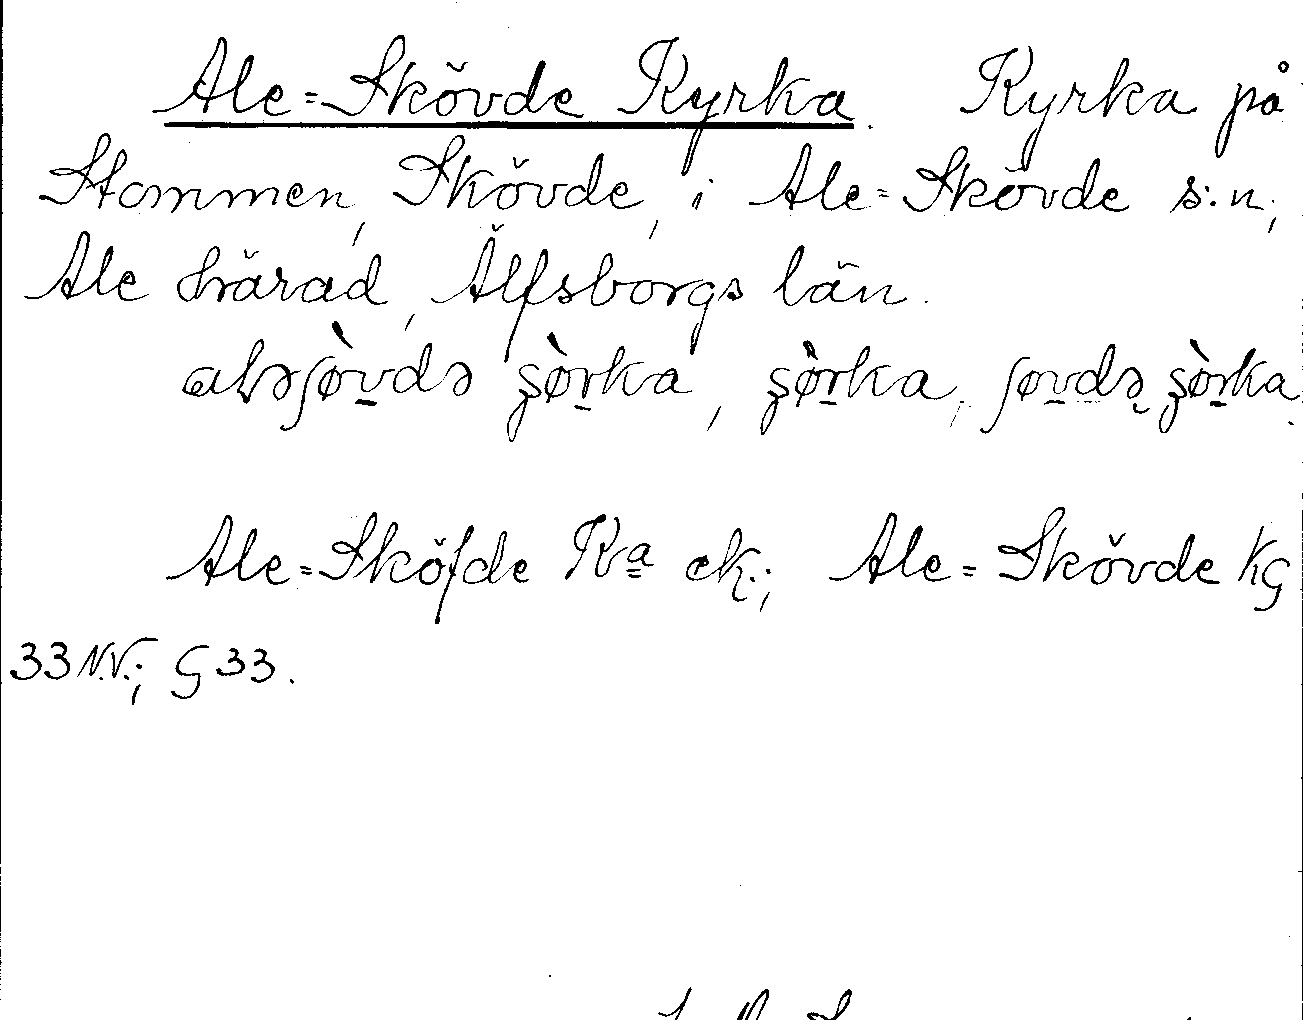 Ale=Skövde Kyrka. Kyrka på
Stommen, Skövde, i Ale=Skövde s:n,
Ale härad, Älfsborgs län.
aləʃø̀vdə ʂø̀rka, ʂø̀rka, ʃøvdə ʂø̀rka.
Ale=Sköfde Ka ek.; Ale=Skövde KG
33 N.V.; G 33.